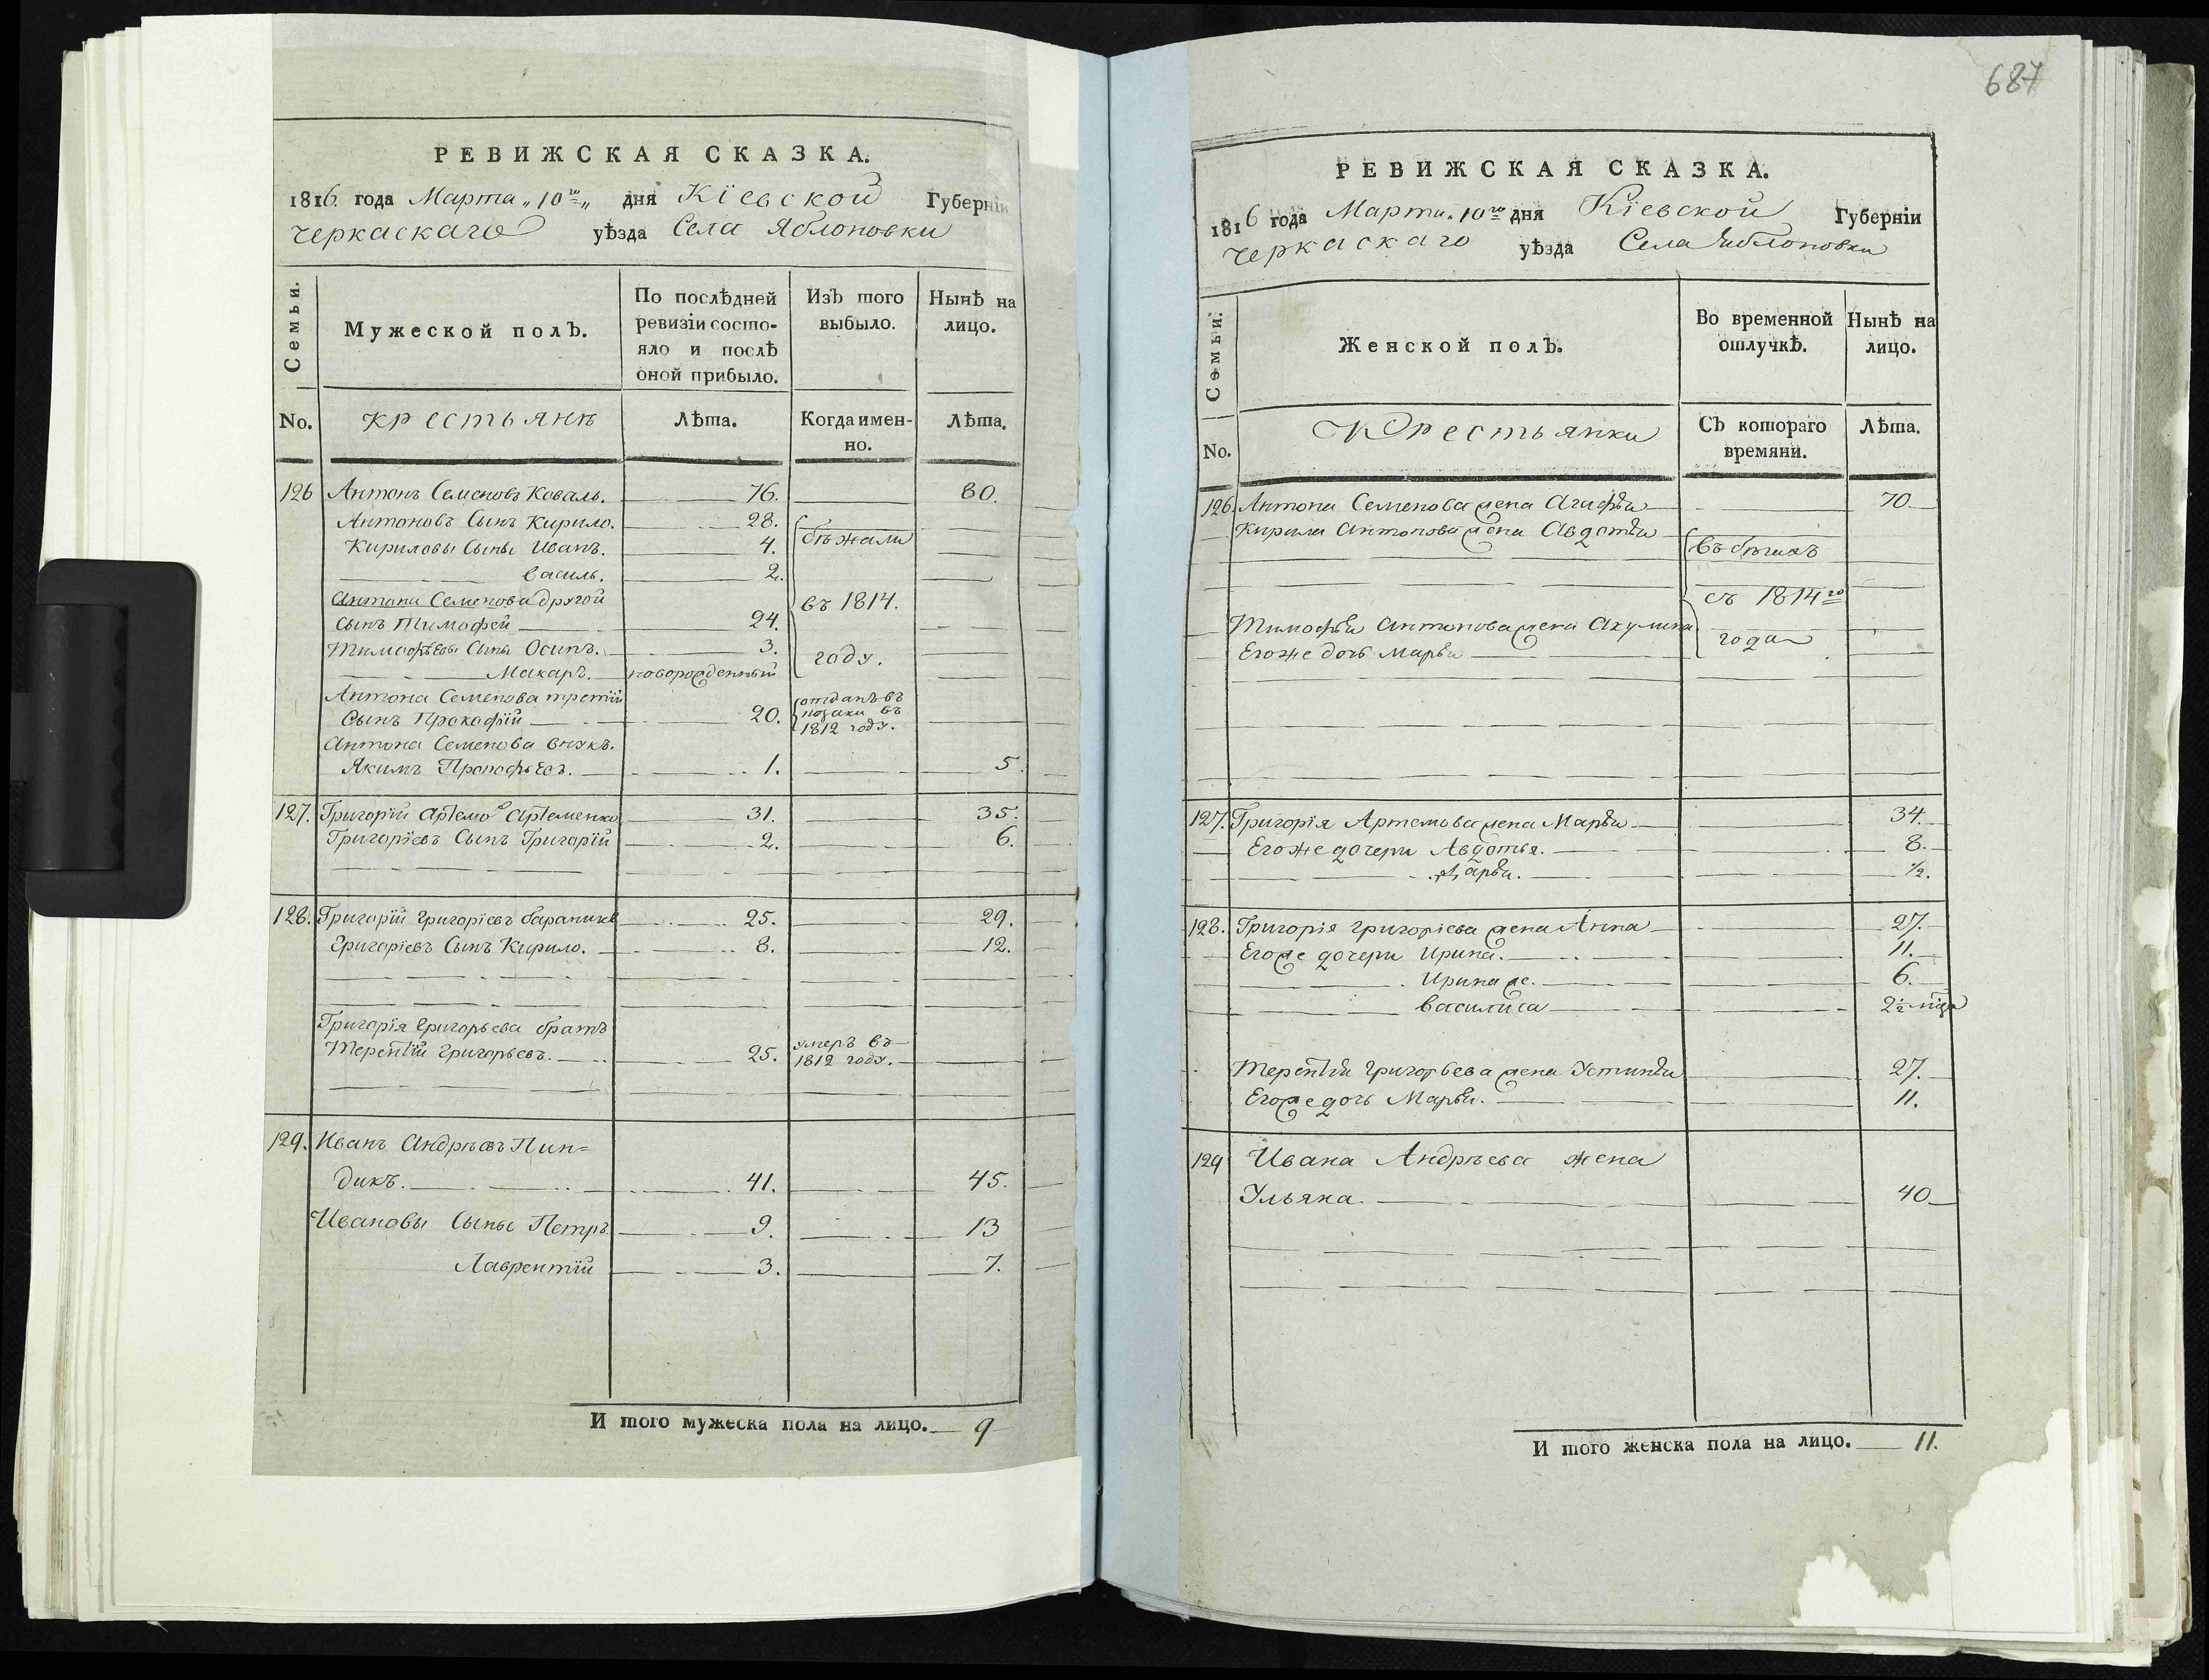 РЕВИЖСКАЯ СКАЗКА.
1816. года Марта „10го„ дня Кіевской Губерніи
Черкаскаго уѣзда Села Яблоновки
Семьи. Мужеской полъ. По послѣдней ревизіи состояло и послѣ оной прибыло. Изъ того выбыло. Нынѣ на лицо.
No. крестьянѣ Лѣта. Когда именно. Лѣта.
126 Антонъ Семеновъ Коваль. 76. 80.
Антоновъ Сынъ Кирило. 28. бѣжали
Кириловы Сыны Иванъ. 4.
Василь. 2.
Антона Семенова другой въ 1814.
Сынъ Тимофей 24.
Тимофѣевы Сыны Осипъ. 3. году.
Макаръ. новорожденный
Антона Семенова третій отданъ въ
Сынъ Прокофій 20. въ
1812 году.
Антона Семенова внукъ.
Якимъ Прокофьевъ. 1. 5.
127. Григорій Артемов Артеменко 31. 35.
Григоріевъ Сынъ Григорій 2. 6.
128. Григорій Григоріевъ 25. 29.
Григоріевъ Сынъ Кирило. 8. 12.
Григорія Григорьева братъ
Терентій Григорьевъ. 25. умеръ въ 1812 году.
129. Иванъ Андрѣевъ Пин=
дикъ. 41. 45.
Ивановы Сыны Петръ 9. 13
Лаврентій 3. 7.
И того мужеска пола на лицо. 9
687
РЕВИЖСКАЯ СКАЗКА.
1816 года Марта. 10го дня Кіевской Губерніи
Черкаскаго уѣзда Села Яблоновки
Семьи. Женской полъ. Во временной отлучкѣ. Нынѣ на лицо.
No. Крестьянки Съ котораго времяни. Лѣта.
126. Антона Семенова жена Агафія 70
Кирила Антонова жена Авдотія въ бѣгахъ
съ 1814го
Тимофѣя Антонова жена Акулина
Егоже дочь Марія года
127. Григорія Артемова жена Марія 34.
Егоже дочери Авдотья. 8.
Дарія. ½.
128. Григорія Григоріева жена Анна 27.
Егоже дочери Ирина. 11.
Ирина же. 6.
Василиса 2½
Терентія Григорьева жена Устинія 27.
Егоже дочь Марія. 11.
129 Ивана Андрѣева жена
Ульяна. 40
И того женска пола на лицо. 11.